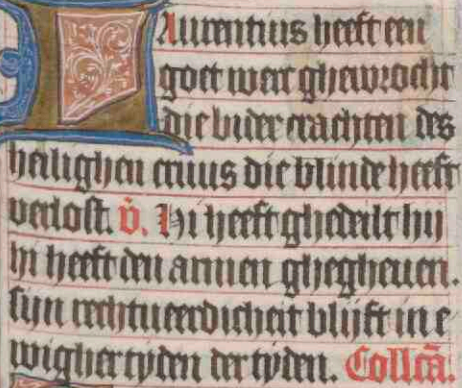 Laurentius heeft een
goet werc ghewrocht
die bider crachten des
heilighen cruus die blinde heeft
verlost. v̄. Hi heeft ghedeilt hii
hi heeft den armen ghegheuen.
sijn rechtueerdicheit blijft in e
wigher tyden der tyden. Collcā.